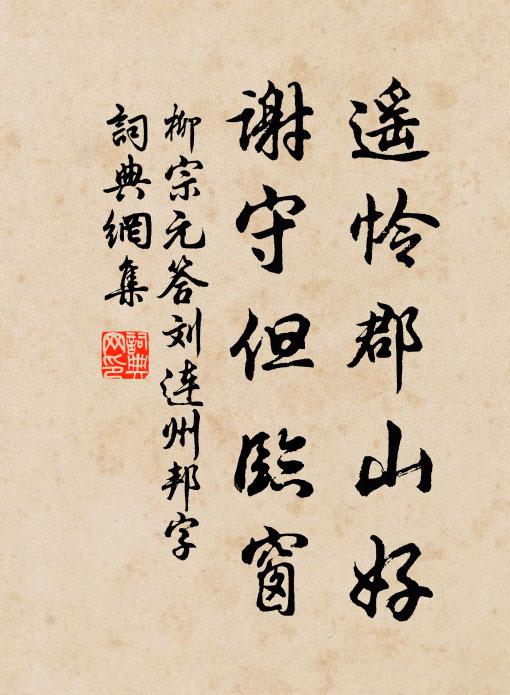 遥怜郡山好
謝守但臨窗
柳宗元答刘連州邦字
詞典網集
詞典網印